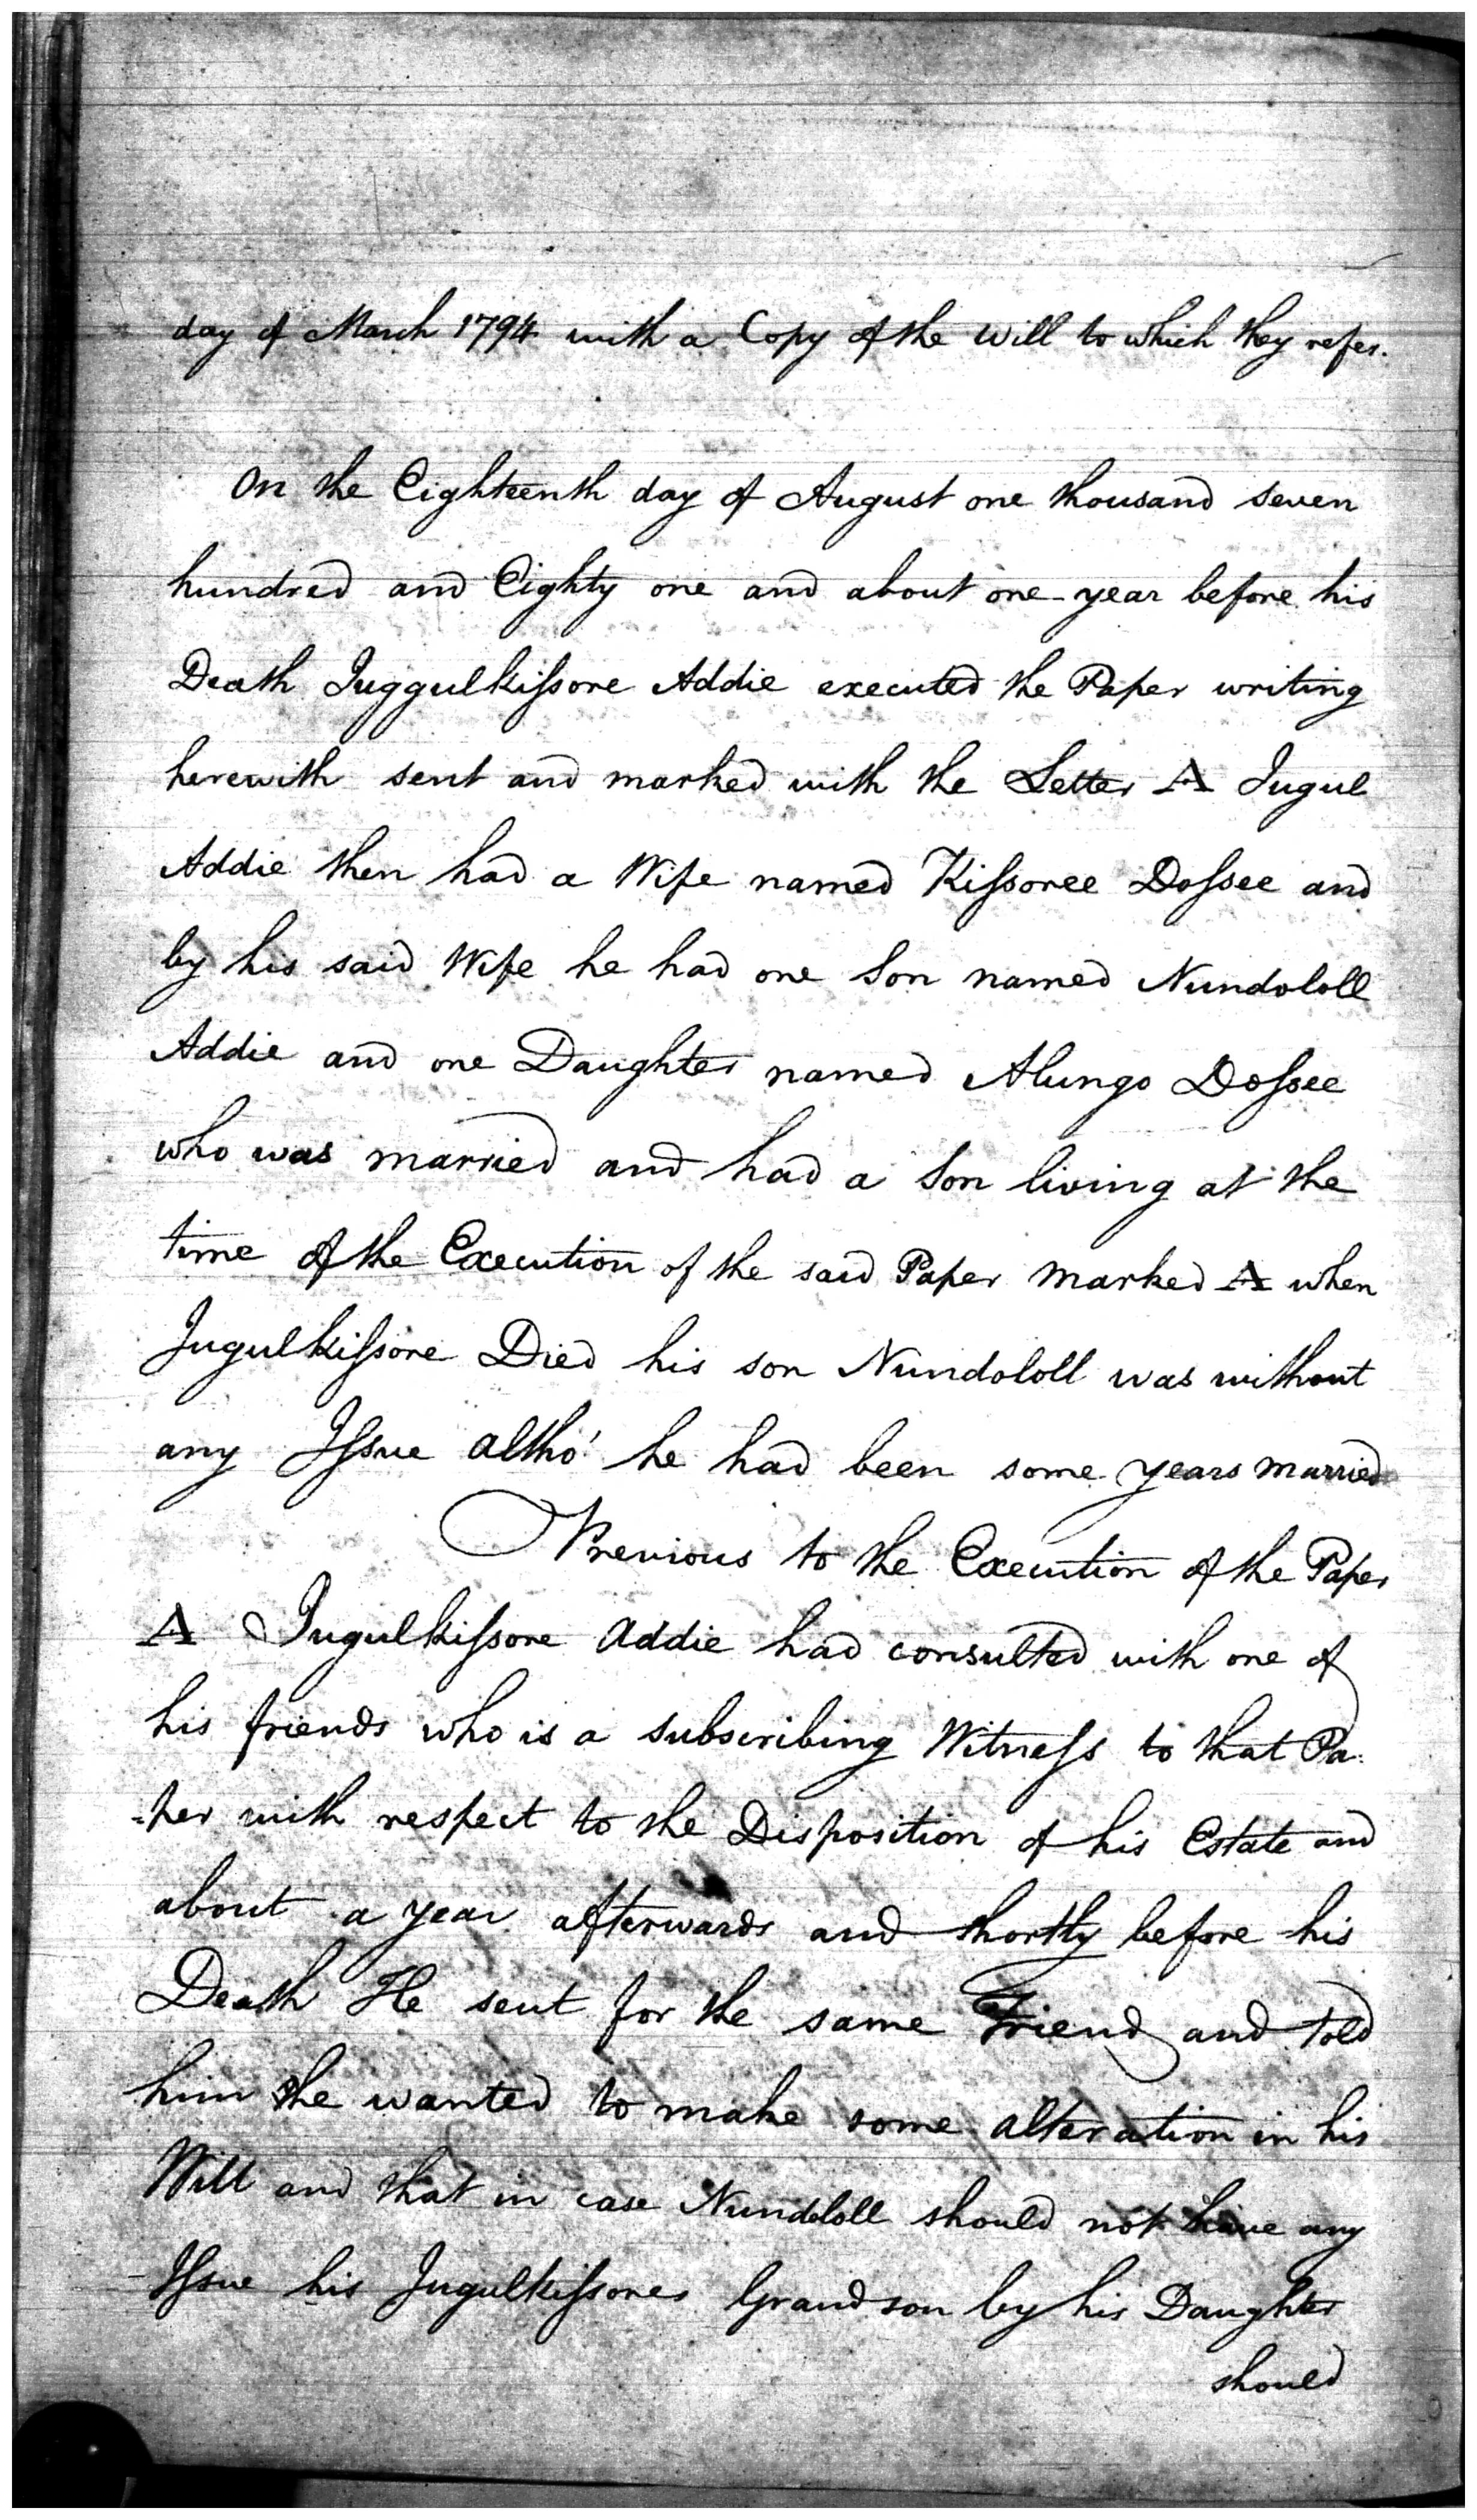 day of March 1794 with a Copy of the Will to which they refer.
On the Eighteenth day of August one thousand seven
hundred and Eighty one and about one year before his
Death Juggulkissore Addie executed the Paper writing
herewith sent and marked with the Letter A Jugul
Addie then had a Wife named Kissoree Dossee and
by his said Wife he had one Son named Nundololl
Addie and one Daughter named Alungo Dossee
who was married and had a Son living at the
time of the Execution of the said Paper marked A when
Jugulkissore Died his son Nundololl was without
any Issue altho' he had been some years married
Previous to the Execution of the Paper
A Jugulkissore Addie had consulted with one of
his friends who is a subscribing Witness to that Pa:
-per with respect to the Disposition of his Estate and
about a year afterwards and shortly before his
Death He sent for the same Friend and told
him he wanted to make some alteration in his
Will and that in case Nundololl should not have any
Issue his Jugulkissores Grandson by his Daughter
should